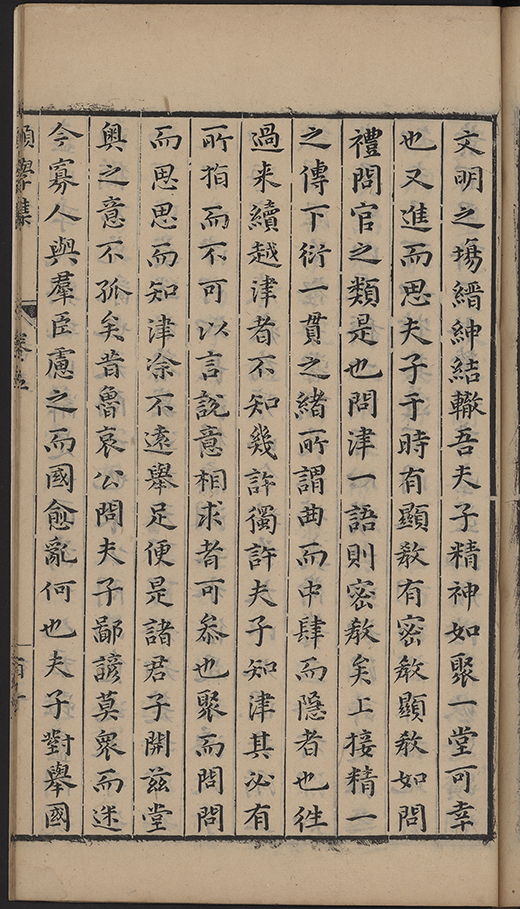 文明之塲縉紳結轍吾夫子精神如聚一堂可幸
也又進而思夫子于時有顯教有密教顯教如問
禮問官之類是也問津一語則密教矣上接精一
之傳下衍一貫之緒所謂曲而中肆而隱者也徃
過来續越津者不知幾許獨許夫子知津其必有
所指而不可以言說意相求者可叅也聚而問問
而思思而知津凃不遠舉足便是諸君子開兹堂
奥之意不孤矣昔魯哀公問夫子鄙諺莫衆而迷
今寡人與羣臣慮之而國愈亂何也夫子對舉國
願學集